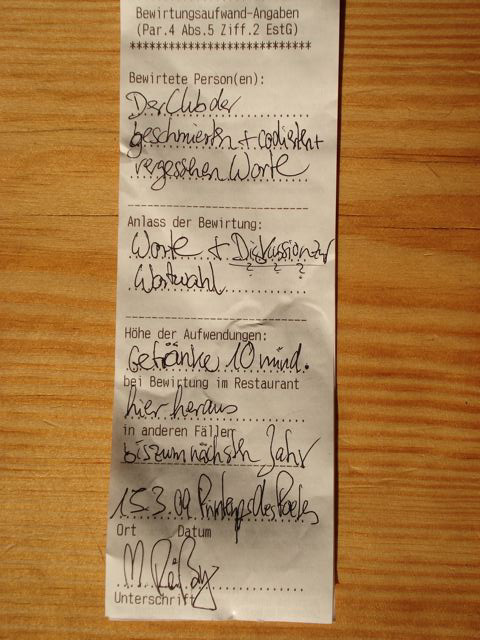 Bewirtungsaufwand-Angaben
(Par.4 Abs.5 Ziff.2 EstG)
**************************
Bewirtete Person(en):
Der Club der
geschmierten + codierten +
vergessenen Worte
Anlass der Bewirtung:
Worte + Diskussion zur
? ? ?
Wortwahl
Höhe der Aufwendungen:
Getränke 10 mind.
bei Bewirtung im Restaurant
hier heraus
in anderen Fällen
bis zum nächsten Jahr
15.3.09 Printemps des Poetes
Ort Datum
Unterschrift